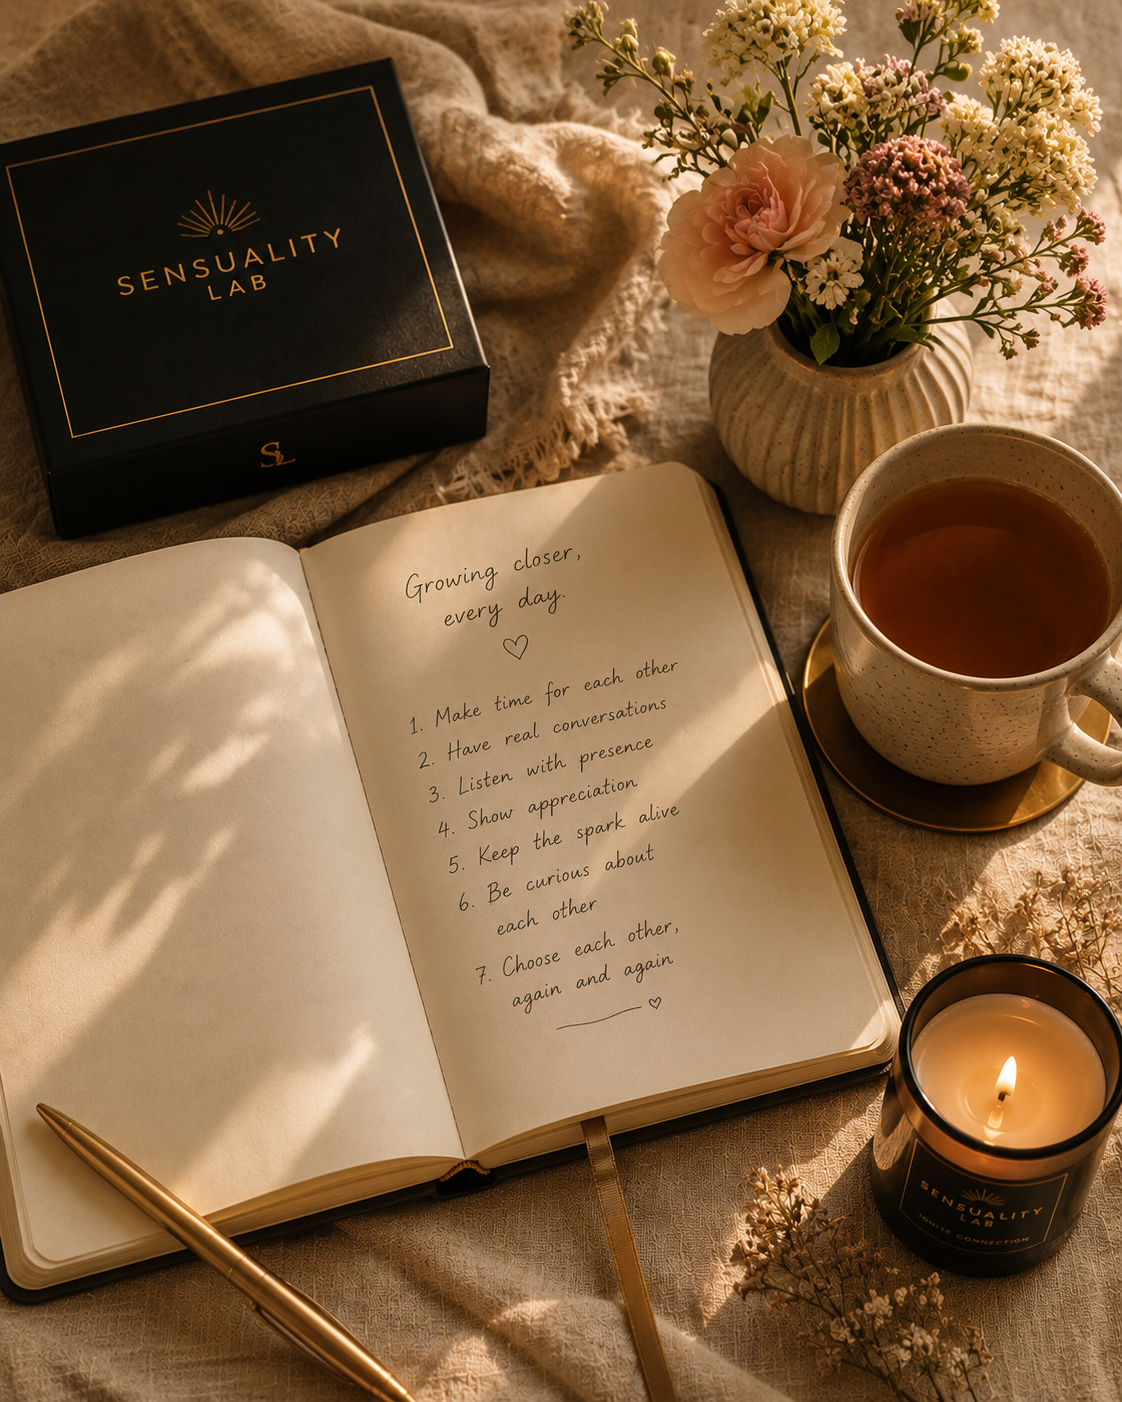 SENSUALITY
LAB
SL
Growing closer,
every day.
1. Make time for each other
2. Have real conversations
3. Listen with presence
4. Show appreciation
5. Keep the spark alive
6. Be curious about
each other
7. Choose each other,
again and again
SENSUALITY
LAB
IGNITE CONNECTION